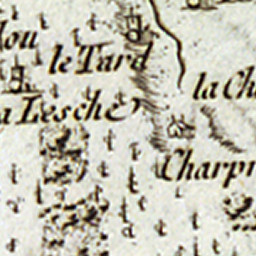 le Tard
la Ch
Lesche
Charp